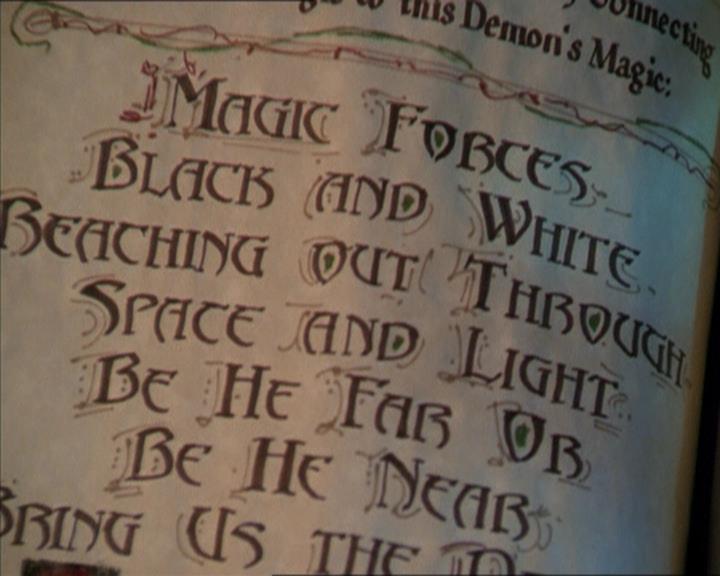 Connecting
to this Demon's Magic:
MAGIC FORCES
BLACK AND WHITE
REACHING OUT THROUGH
SPACE AND LIGHT
BE HE FAR OR
BE HE NEAR
BRING US THE